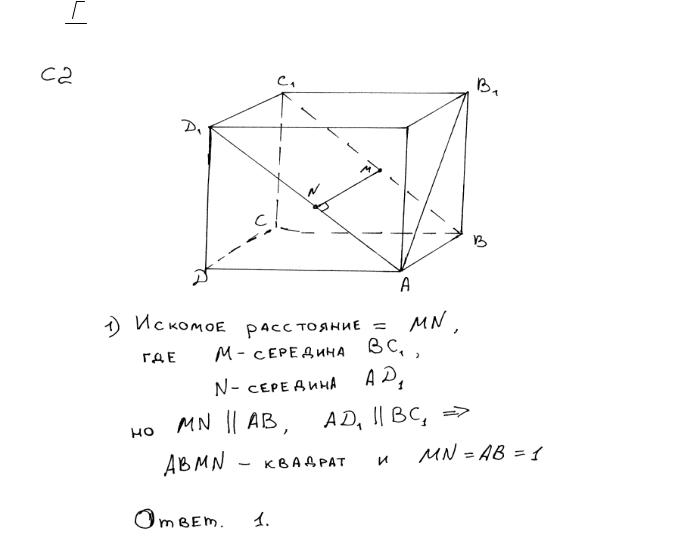 I
C2
C₁
B₁
D₁
M
N
C
B
D
A
1) Искомое расстояние = MN,
где M - середина BC₁,
N - середина AD₁
но MN || AB, AD₁ || BC₁ ⇒
ABMN - квадрат и MN = AB = 1
Ответ. 1.